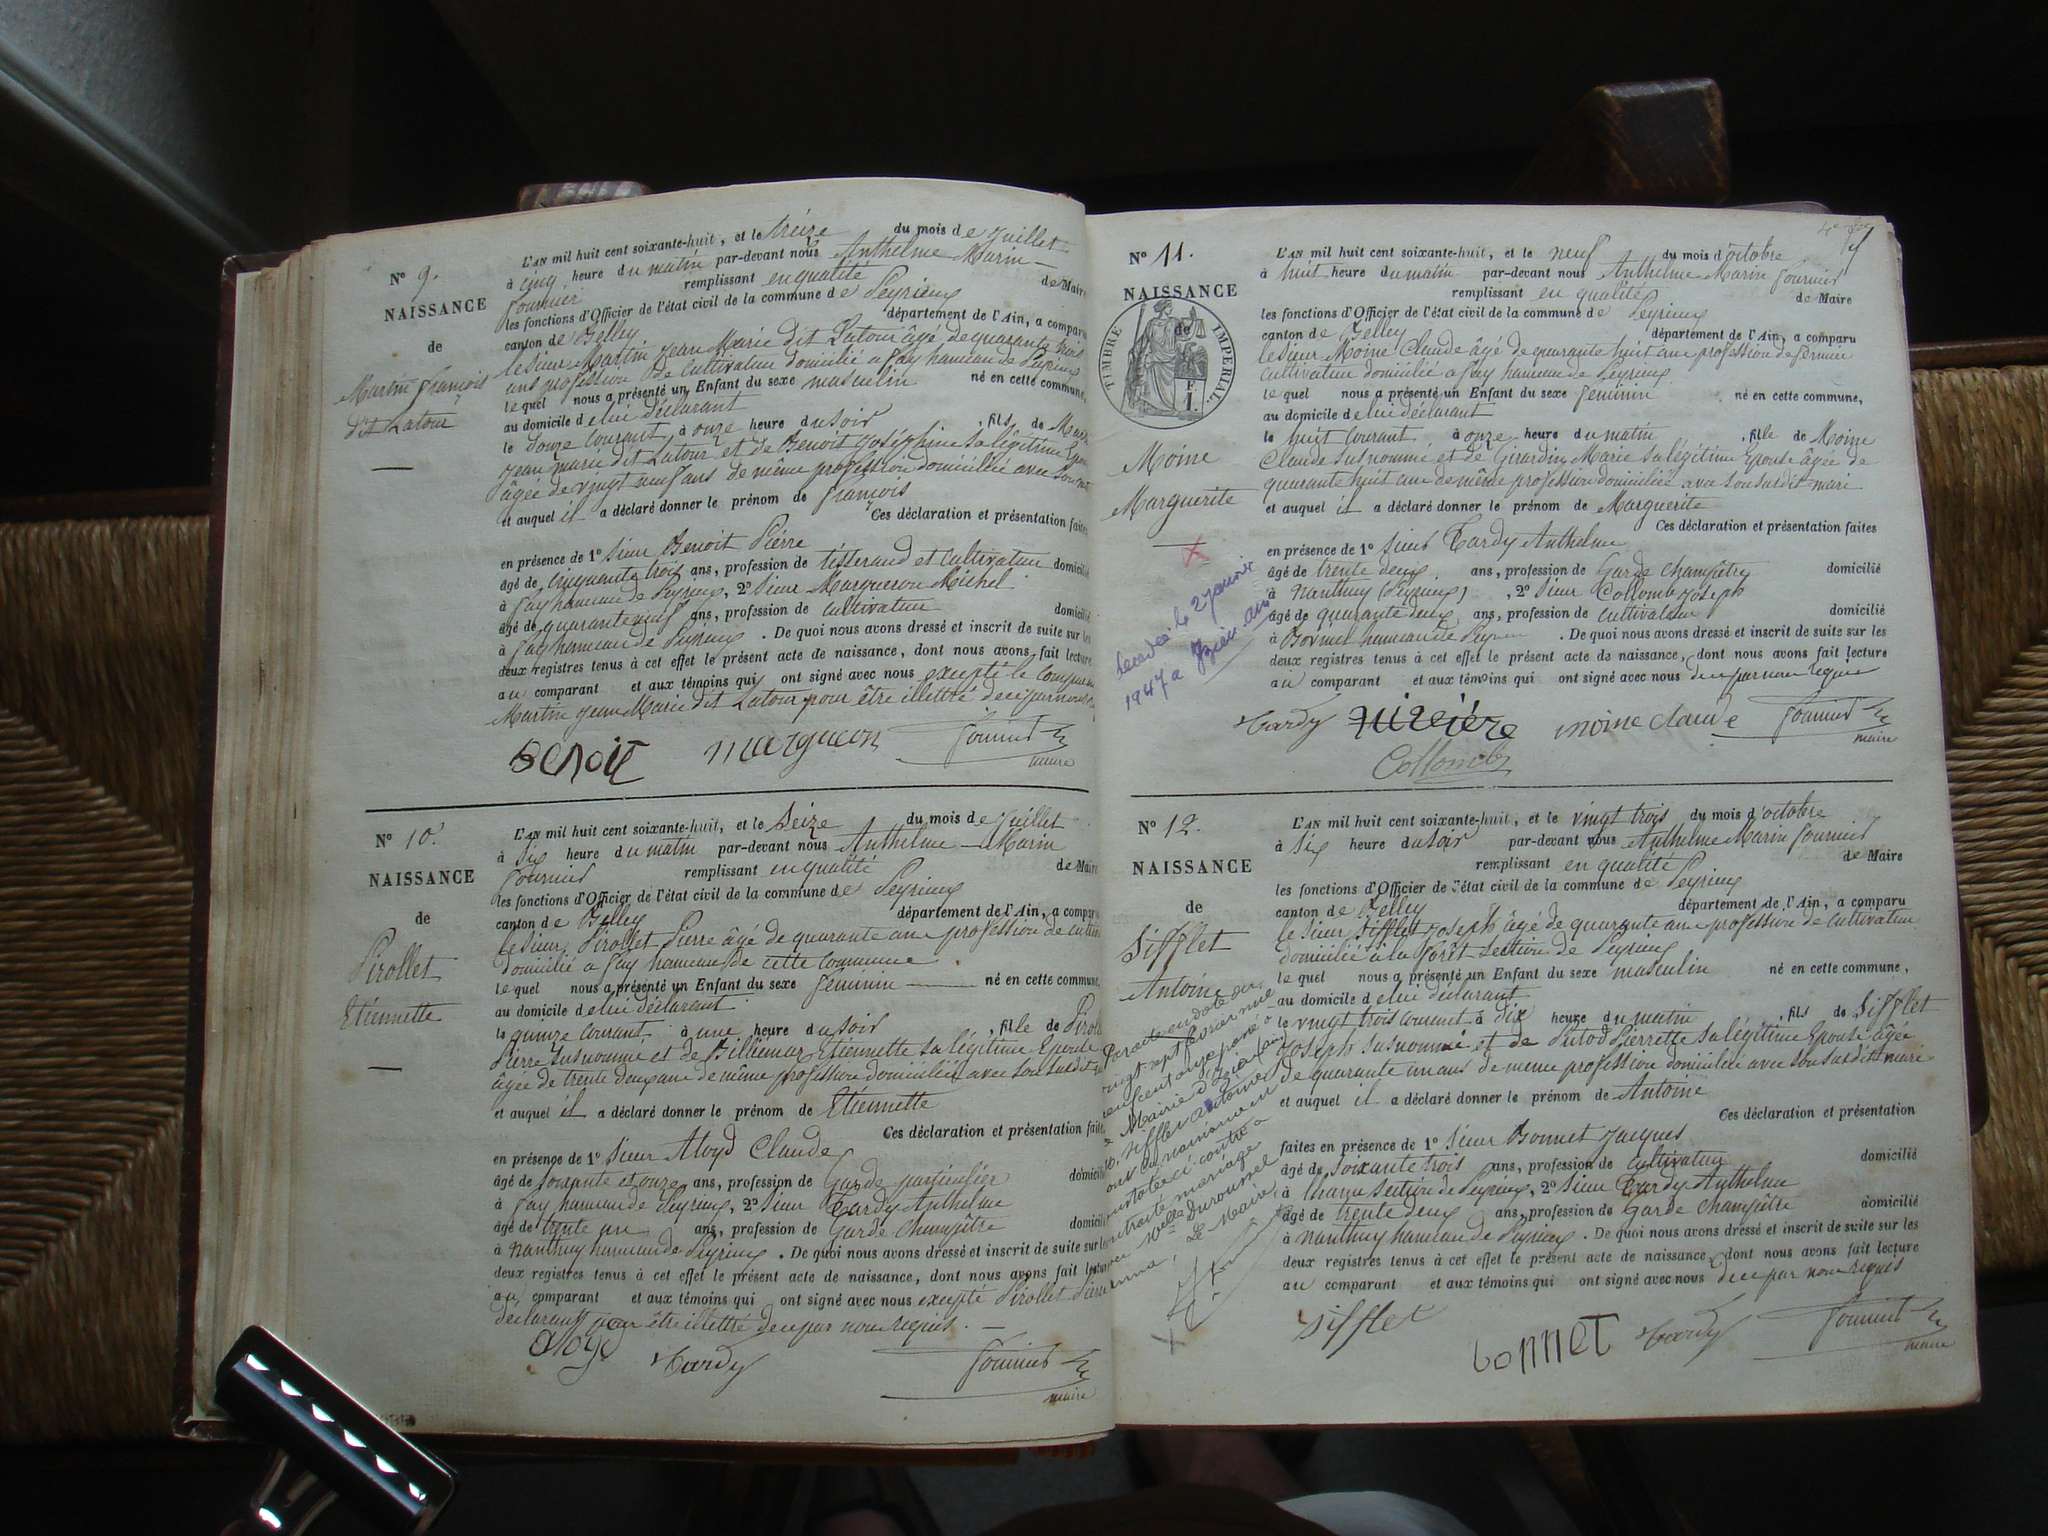 N° 9.
NAISSANCE
de
Martin françois
dit Latour
L'AN mil huit cent soixante-huit, et le treize du mois de Juillet
à cinq heure du matin par-devant nous Anthelme Marin
fournier remplissant en qualité de Maire
les fonctions d'Officier de l'état civil de la commune de Peyrieux
canton de Belley département de l'Ain, a comparu
le sieur Martin Jean Marie dit Latour âgé de quarante trois
ans profession de cultivateur domicilié a fay hameau de Peyrieux
le quel nous a présenté un Enfant du sexe masculin né en cette commune,
au domicile de lui déclarant
le douze courant à onze heure du soir , fils de Martin
Jean marie dit Latour et de Benoit Joséphine sa légitime Epouse
âgée de vingt neuf ans de même profession domiciliée avec son
et auquel il a déclaré donner le prénom de françois
Ces déclaration et présentation faites
en présence de 1° sieur Benoit Pierre
âgé de cinquante trois ans, profession de tisserand et cultivateur domicilié
à fay hameau de Peyrieux, 2° sieur Margueron Michel
âgé de quarante neuf ans, profession de cultivateur domicilié
à fay hameau de Peyrieux . De quoi nous avons dressé et inscrit de suite sur les
deux registres tenus à cet effet le présent acte de naissance, dont nous avons fait lecture
au comparant et aux témoins qui ont signé avec nous excepté le comparant
Martin Jean Marie dit Latour pour être illettré de ce par nous
Benoit margueron fournier
maire
N° 10.
NAISSANCE
de
Pirollet
Etiennette
L'AN mil huit cent soixante-huit, et le seize du mois de Juillet
à six heure du matin par-devant nous Anthelme Marin
fournier remplissant en qualité de Maire
les fonctions d'Officier de l'état civil de la commune de Peyrieux
canton de Belley département de l'Ain, a comparu
le sieur Pirollet Pierre âgé de quarante ans profession de
domicilié a fay hameau de cette commune
le quel nous a présenté un Enfant du sexe féminin né en cette commune,
au domicile de lui déclarant
le quinze courant à une heure du soir , fille de
Pierre susnommé et de Billiemaz Etiennette sa légitime Epouse
âgée de trente deux ans de même profession domiciliée avec son susdit
et auquel il a déclaré donner le prénom de Etiennette
Ces déclaration et présentation faites
en présence de 1° sieur Aloyd Claude
âgé de soixante et onze ans, profession de Garde particulier domicilié
à fay hameau de Peyrieux, 2° sieur Tardy Anthelme
âgé de trente un ans, profession de Garde champêtre domicilié
à Nanthuy hameau de Peyrieux . De quoi nous avons dressé et inscrit de suite sur les
deux registres tenus à cet effet le présent acte de naissance, dont nous avons fait lecture
au comparant et aux témoins qui ont signé avec nous excepté Pirollet Pierre
déclarant pour être illettré de ce par nous requis.
Tardy fournier
maire
N° 11.
NAISSANCE
de
TIMBRE IMPERIAL
Moine
Marguerite
Decedée le 2 Janvier
1947 a Izieu
L'AN mil huit cent soixante-huit, et le neuf du mois d'octobre
à huit heure du matin par-devant nous Anthelme Marin fournier
remplissant en qualité de Maire
les fonctions d'Officier de l'état civil de la commune de Peyrieux
canton de Belley département de l'Ain, a comparu
le sieur Moine Claude âgé de quarante huit ans profession de fermier
cultivateur domicilié a fay hameau de Peyrieux
le quel nous a présenté un Enfant du sexe féminin né en cette commune,
au domicile de lui déclarant
le huit courant à onze heure du matin , fille de Moine
Claude susnommé et de Girardin Marie sa légitime Epouse âgée de
quarante huit ans de même profession domiciliée avec son susdit mari
et auquel il a déclaré donner le prénom de Marguerite
Ces déclaration et présentation faites
en présence de 1° sieur Tardy Anthelme
âgé de trente deux ans, profession de Garde champêtre domicilié
à Nanthuy (Peyrieux) , 2° sieur Collomb Joseph
âgé de quarante deux ans, profession de cultivateur domicilié
à hameau de Peyrieux . De quoi nous avons dressé et inscrit de suite sur les
deux registres tenus à cet effet le présent acte de naissance, dont nous avons fait lecture
au comparant et aux témoins qui ont signé avec nous de ce par nous requis
Tardy moine claude fournier
maire
Collomb
N° 12.
NAISSANCE
de
Sifflet
Antoine
L'AN mil huit cent soixante-huit, et le vingt trois du mois d'octobre
à six heure du soir par-devant nous Anthelme Marin fournier
remplissant en qualité de Maire
les fonctions d'Officier de l'état civil de la commune de Peyrieux
canton de Belley département de l'Ain, a comparu
le sieur Sifflet Joseph âgé de quarante ans profession de cultivateur
domicilié à la forêt section de Peyrieux
le quel nous a présenté un Enfant du sexe masculin né en cette commune,
au domicile de lui déclarant
le vingt trois courant à dix heure du matin , fils de Sifflet
Joseph susnommé et de Pierrette sa légitime Epouse âgée
de quarante un ans de même profession domiciliée avec son susdit mari
et auquel il a déclaré donner le prénom de Antoine
Ces déclaration et présentation
faites en présence de 1° sieur Bonnet Jacques
âgé de soixante trois ans, profession de cultivateur domicilié
à section de Peyrieux, 2° sieur Tardy Anthelme
âgé de trente deux ans, profession de Garde champêtre domicilié
à Nanthuy hameau de Peyrieux . De quoi nous avons dressé et inscrit de suite sur les
deux registres tenus à cet effet le présent acte de naissance, dont nous avons fait lecture
au comparant et aux témoins qui ont signé avec nous de ce par nous requis
Par acte en date du
vingt sept février mil
neuf cent onze passé à
la Mairie d'Izieu
M. Sifflet Antoine
dont la naissance est
constatée ci-contre a
contracté mariage
avec Mlle Duroussel
Le Maire,
sifflet bonnet Tardy fournier
maire